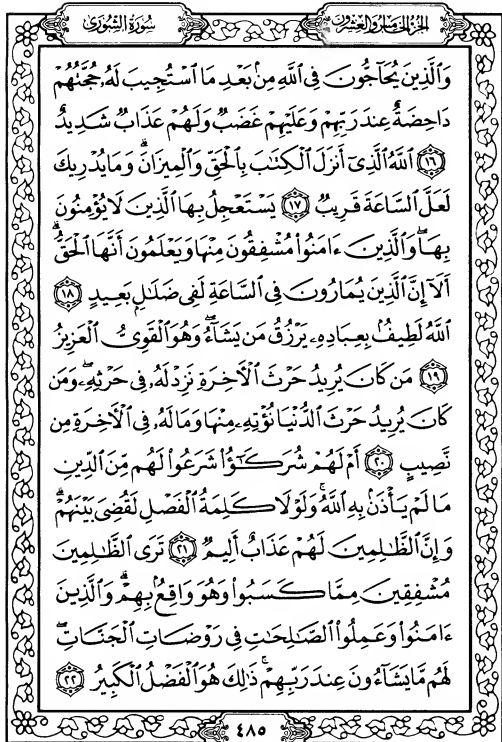 سُورَةُ الشُّورَىٰ
الجزء الخامس والعشرون
وَالَّذِينَ يُحَاجُّونَ فِي اللَّهِ مِنۢ بَعْدِ مَا ٱسْتُجِيبَ لَهُۥ حُجَّتُهُمْ
دَاحِضَةٌ عِندَ رَبِّهِمْ وَعَلَيْهِمْ غَضَبٌ وَلَهُمْ عَذَابٌ شَدِيدٌ
﴿١٦﴾ ٱللَّهُ ٱلَّذِىٓ أَنزَلَ ٱلْكِتَٰبَ بِٱلْحَقِّ وَٱلْمِيزَانَ ۗ وَمَا يُدْرِيكَ
لَعَلَّ ٱلسَّاعَةَ قَرِيبٌ ﴿١٧﴾ يَسْتَعْجِلُ بِهَا ٱلَّذِينَ لَا يُؤْمِنُونَ
بِهَا ۖ وَٱلَّذِينَ ءَامَنُوا۟ مُشْفِقُونَ مِنْهَا وَيَعْلَمُونَ أَنَّهَا ٱلْحَقُّ ۗ
أَلَآ إِنَّ ٱلَّذِينَ يُمَارُونَ فِى ٱلسَّاعَةِ لَفِى ضَلَٰلٍۭ بَعِيدٍ ﴿١٨﴾
ٱللَّهُ لَطِيفٌۢ بِعِبَادِهِۦ يَرْزُقُ مَن يَشَآءُ ۖ وَهُوَ ٱلْقَوِىُّ ٱلْعَزِيزُ
﴿١٩﴾ مَن كَانَ يُرِيدُ حَرْثَ ٱلْءَاخِرَةِ نَزِدْ لَهُۥ فِى حَرْثِهِۦ ۖ وَمَن
كَانَ يُرِيدُ حَرْثَ ٱلدُّنْيَا نُؤْتِهِۦ مِنْهَا وَمَا لَهُۥ فِى ٱلْءَاخِرَةِ مِن
نَّصِيبٍ ﴿٢٠﴾ أَمْ لَهُمْ شُرَكَٰٓؤُا۟ شَرَعُوا۟ لَهُم مِّنَ ٱلدِّينِ
مَا لَمْ يَأْذَنۢ بِهِ ٱللَّهُ ۚ وَلَوْلَا كَلِمَةُ ٱلْفَصْلِ لَقُضِىَ بَيْنَهُمْ ۗ
وَإِنَّ ٱلظَّٰلِمِينَ لَهُمْ عَذَابٌ أَلِيمٌ ﴿٢١﴾ تَرَى ٱلظَّٰلِمِينَ
مُشْفِقِينَ مِمَّا كَسَبُوا۟ وَهُوَ وَاقِعٌۢ بِهِمْ ۗ وَٱلَّذِينَ
ءَامَنُوا۟ وَعَمِلُوا۟ ٱلصَّٰلِحَٰتِ فِى رَوْضَاتِ ٱلْجَنَّاتِ ۖ
لَهُم مَّا يَشَآءُونَ عِندَ رَبِّهِمْ ۚ ذَٰلِكَ هُوَ ٱلْفَضْلُ ٱلْكَبِيرُ ﴿٢٢﴾
٤٨٥